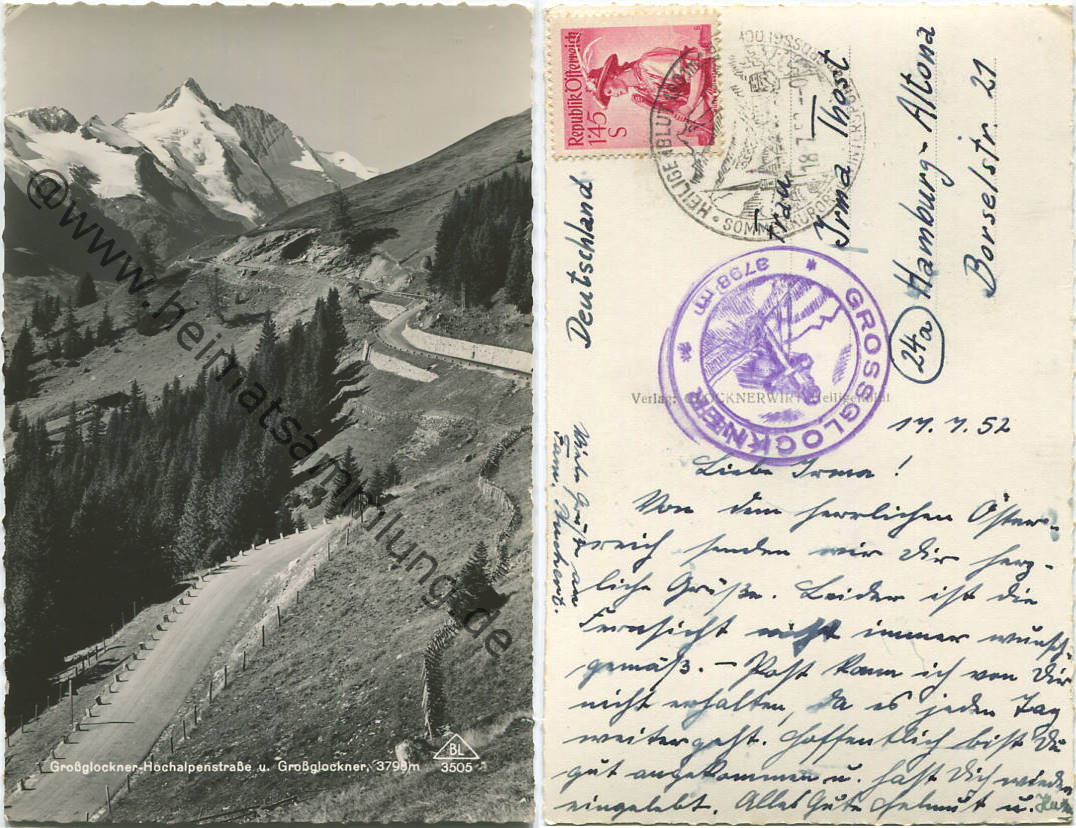 @www.heimatsammlung.de
Großglockner-Hochalpenstraße u. Großglockner, 3798m
BL
3505
Republik Österreich
1'45
S
HEILIGENBLUT
18.7.52
GROSSGLOCKNER
3798 m
Verlag: GLOCKNERWIRT Heiligenblut
Frau
Irma Thost
(24a) Hamburg-Altona
Borselstr. 21
Deutschland
17.7.52
Liebe Irma!
Von dem herrlichen Öster-
reich senden wir Dir herz-
liche Grüße. Leider ist die
Fernsicht nicht immer wunsch-
gemäß. – Post kann ich von Dir
nicht erhalten, da es jeden Tag
weitergeht. Hoffentlich bist Du
gut angekommen u. hast Dich wieder
eingelebt. Alles Gute Helmut u.
Viele Grüße an
Fam.